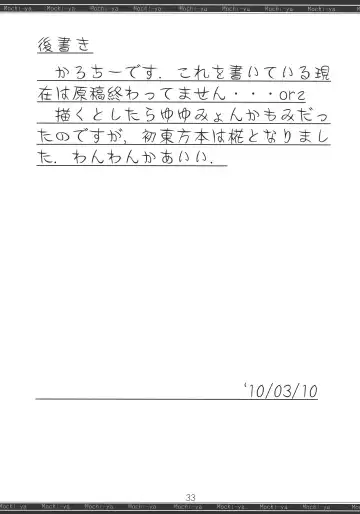 Mochi-ya Mochi-ya Mochi-ya Mochi-ya Mochi-ya Mochi-ya Mochi-ya Mochi-ya
後書き
かろちーです．これを書いている現
在は原稿終わってません・・・orz
描くとしたらゆゆみょんかもみだっ
たのですが，初東方本は椛となりまし
た．わんわんかあいい．
'10/03/10
33
Mochi-ya Mochi-ya Mochi-ya Mochi-ya Mochi-ya Mochi-ya Mochi-ya Mochi-ya